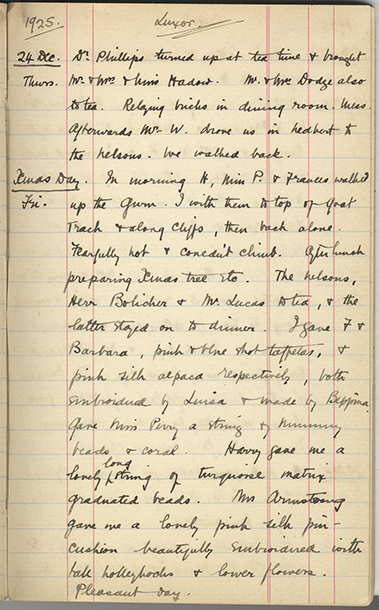 1925. Luxor.
24 Dec. Dr. Phillips turned up at tea time & brought
Thurs. Mr & Mrs & Miss Hadow. Mr. & Mrs Dodge also
to tea. Relaying bricks in dining room.
Afterwards Mr. W. drove us in to
the Nelsons. We walked back.
Xmas Day. In morning H, Miss P. & Frances walked
Fri. up the Gurn. I with them to top of Goat
Track & along cliffs, then back alone.
Fearfully hot & couldn't climb. After lunch
preparing Xmas tree etc. The Nelsons,
Herr & Mr. Lucas to tea, & the
latter stayed on to dinner. I gave F &
Barbara, pink & blue shot taffetas, &
pink silk alpaca respectively, both
embroidered by Luisa & made by Beppina.
Gave Miss Perry a string of mummy
beads & coral. Harry gave me a
lovely long string of turquoise matrix
graduated beads. Mrs Armstrong
gave me a lovely pink silk pin-
cushion beautifully embroidered with
tall hollyhocks & lower flowers.
Pleasant day.